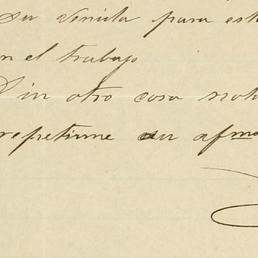 su venida para est
n el trabajo
Sin otro cosa
repetirme su afmo